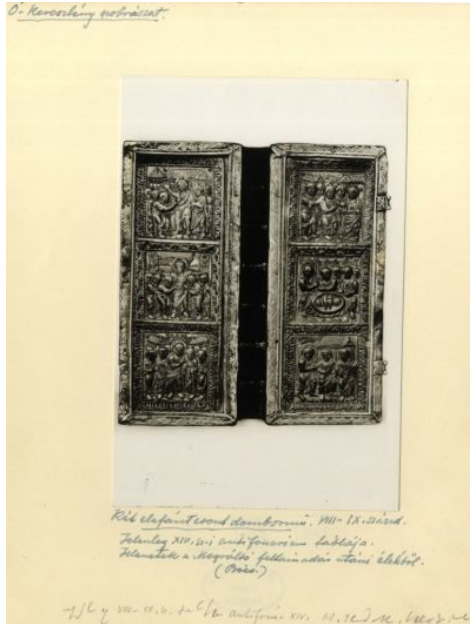 Ó-keresztény szobrászat.
Két elefántcsont dombormű. VIII–IX. század.
Jelenleg XIV. sz.-i antifonarium táblája.
Jelenetek a Megváltó feltámadás utáni életéből.
(Bécs.)
VIII–IX. antifoná XIV.